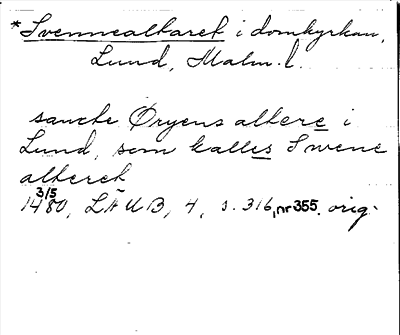 *Svennealtaret i domkyrkan,
Lund, Malm. l.
sancte Øryens altere i
Lund, som kalles Swene
alteret
3/5
1480, LÄUB, 4, s. 316, nr 355. orig.